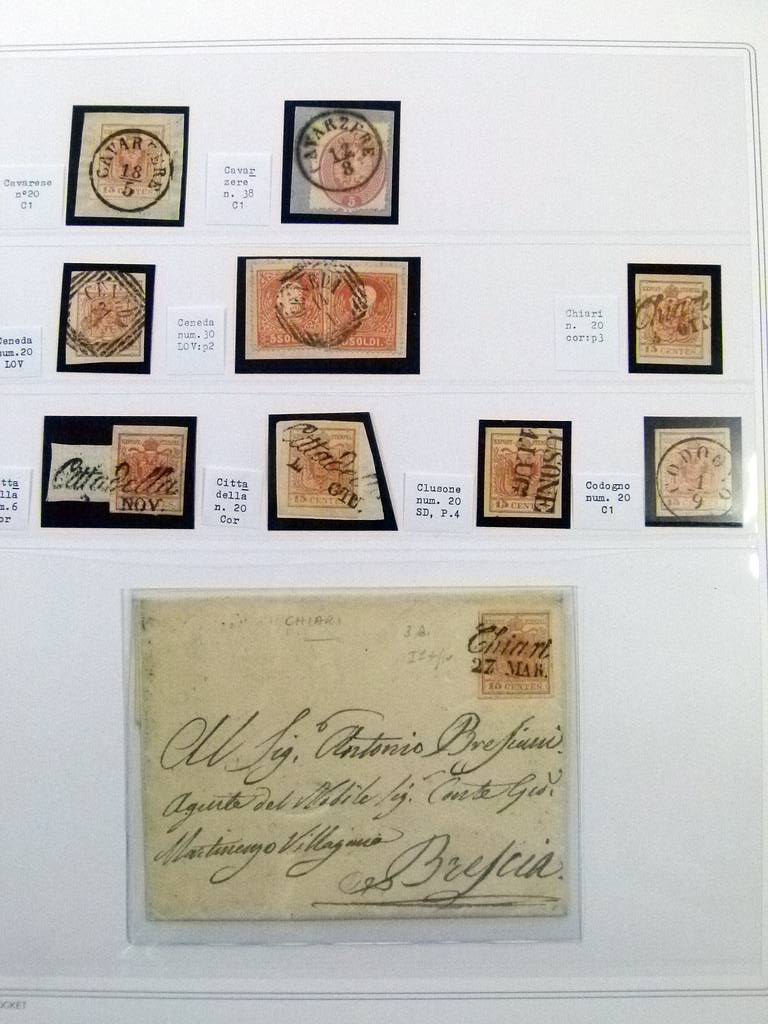 Cavarese
n°20
C1
CAVARZERE
18
5
15 CENTES
Cavar
zere
n. 38
C1
CAVARZERE
12
8
5
Ceneda
num.20
LOV
CENEDA
Ceneda
num.30
LOV:p2
CENEDA
5 SOLDI
5 SOLDI.
Chiari
n. 20
cor:p3
Chiari
15 CENTES
tta
lla
m.6
or
Cittadella
NOV.
Citta
della
n. 20
Cor
Cittadella
GIU.
15 CENTES
Clusone
num. 20
SD, P.4
USONE
4 LUG
15 CENT
Codogno
num. 20
C1
CODOGNO
1
9
CHIARI
Chiari
27 MAR.
15 CENTES
Al Sig.r Antonio Bresciani.
Agente del Nobile Sig.r Conte Gio.
Martinengo Villagana
Brescia.
OCKET